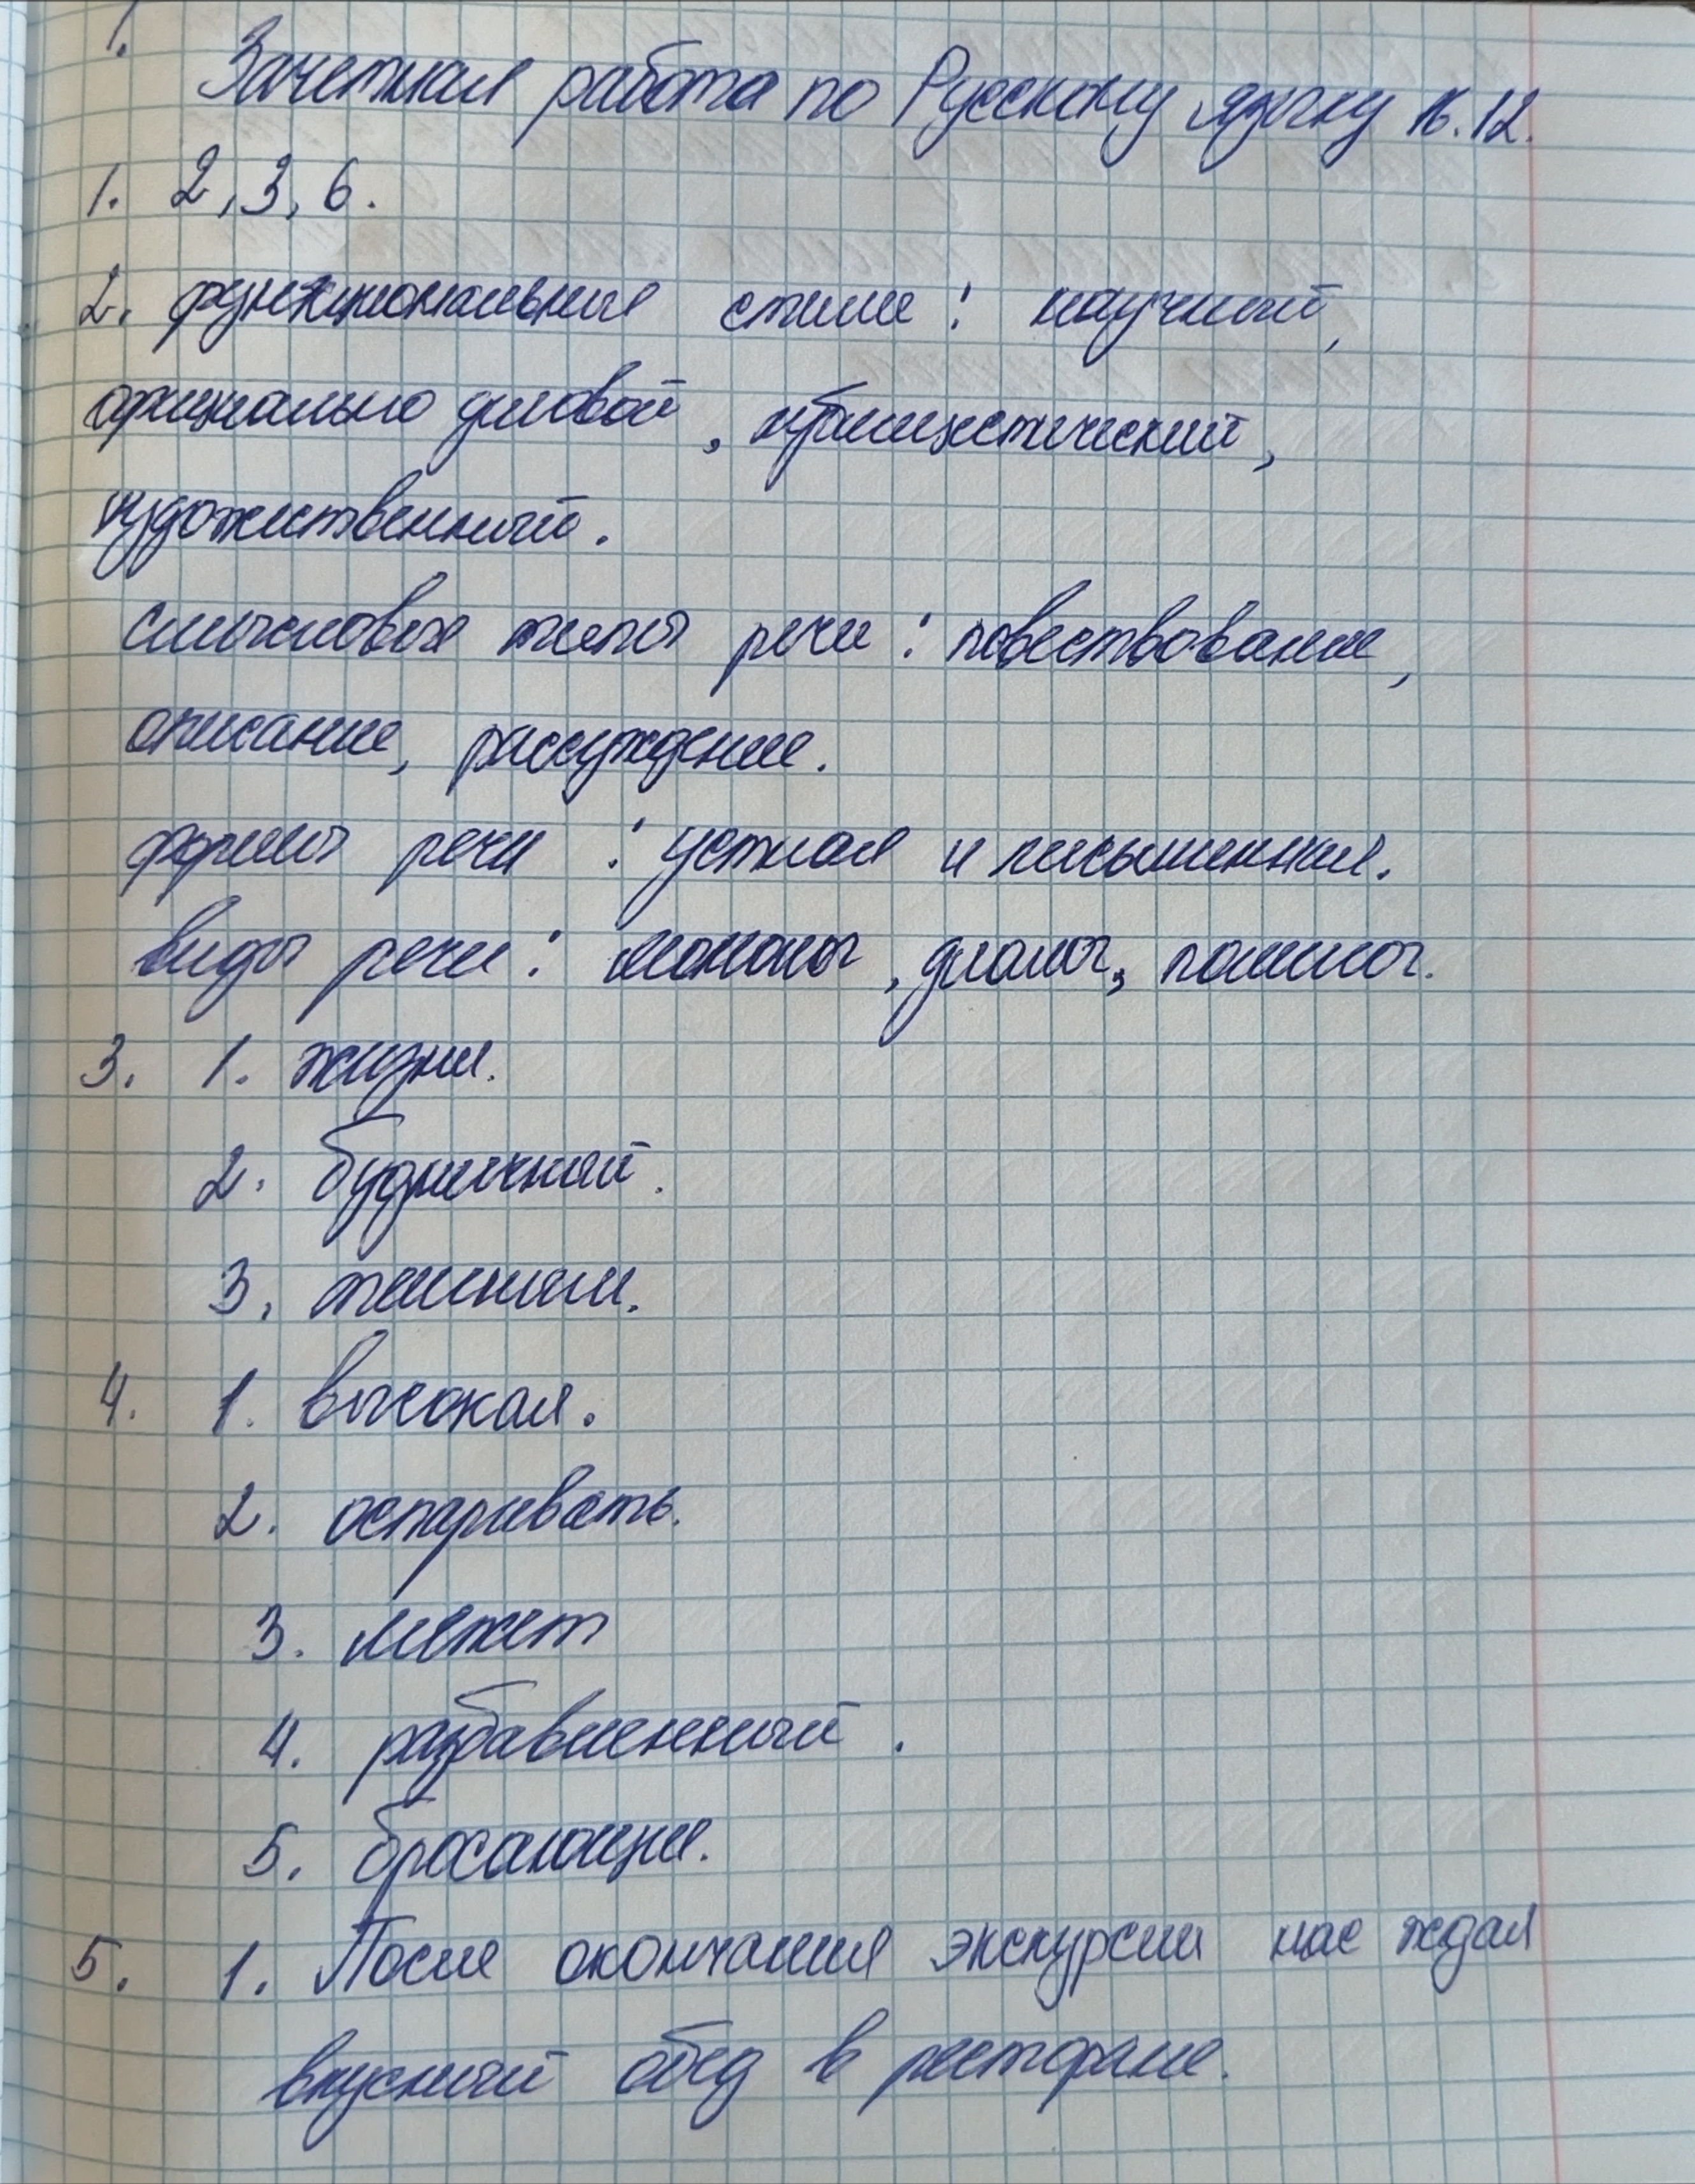 1.
Зачетная работа по Русскому языку 16.12.
1. 2, 3, 6.
2. функциональные стили : научный,
официально деловой, публицистический,
художественный.
смысловые типы речи : повествование,
описание, рассуждение.
формы речи : устная и письменная.
виды речи : монолог, диалог, полилог.
3. 1. жизни.
2. будничный.
3.
4. 1. высокая.
2. оспаривать.
3. может
4. разбавленный.
5. бросающие.
5. 1. После окончания экскурсии нас ждал
вкусный обед в ресторане.